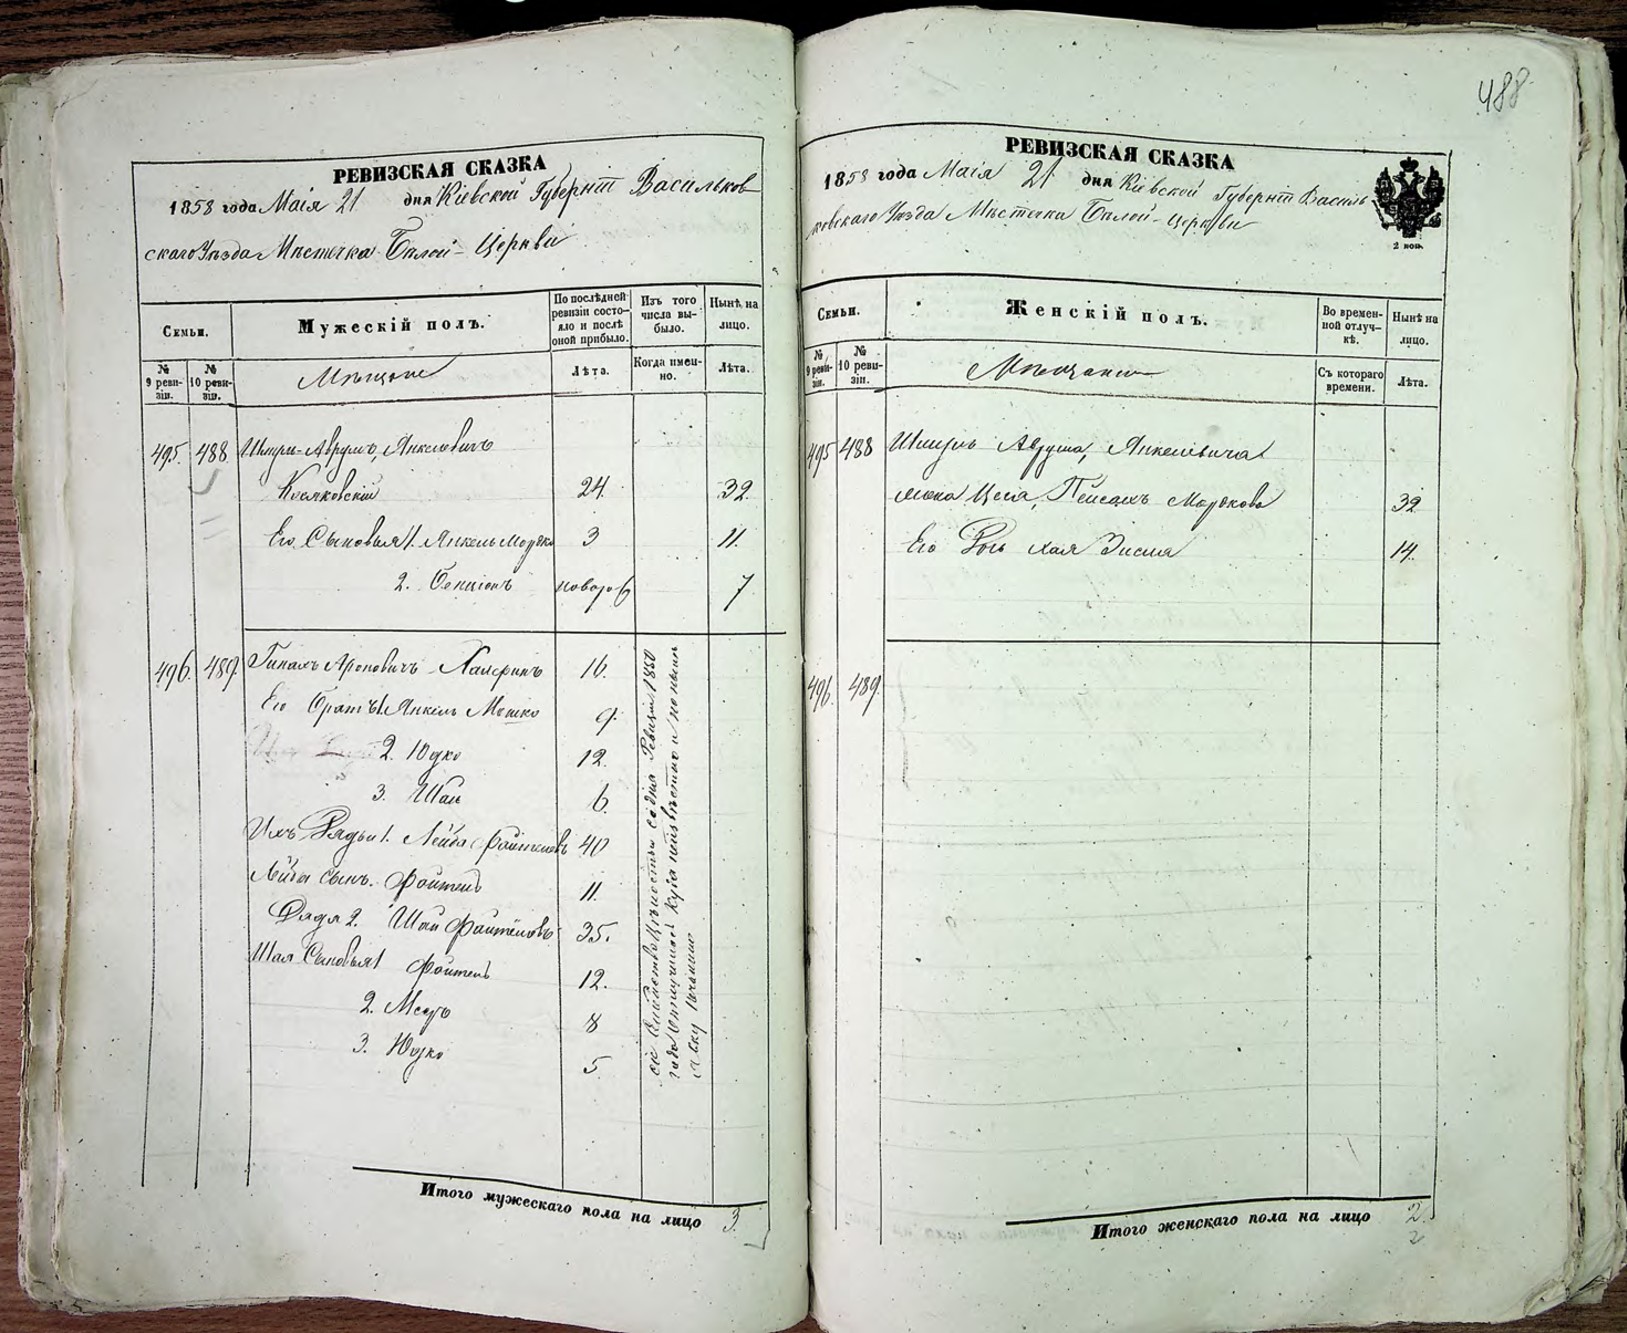 488
РЕВИЗСКАЯ СКАЗКА
1858 года Маія 21 дня Кіевской Губерніи Васильков
скаго Уѣзда Мѣстечка Бѣлой-Церкви
Семьи.
Мужескій полъ.
По послѣдней ревизіи состояло и послѣ оной прибыло.
Изъ того числа выбыло.
Нынѣ на лицо.
№ 9 ревизіи.
№ 10 ревизіи.
Мѣщане
Лѣта.
Когда именно.
Лѣта.
495. 488 Шмуль-Аврумъ, Янкелевичъ
24. 32
Его Сыновья 1. Янкель Мордко 3 11.
2. Бенціонъ новорож 7
496. 489. Ароновичъ 16.
Его Братья 1. Янкель Мошко 9.
2. Юдко 12.
3. Шая 6.
Ихъ Дядьи 1. Лейба 40
Лейбы сынъ. Фойтель 11.
Дядя 2. Шая 35.
Шая Сыновья 1 Фойтель 12.
2. 8
3. Юдко 5
сіе Семейство въ съ дня Ревизіи 1850
года отлучилось куда неизвѣстно и по нынѣ
явку
Итого мужескаго пола на лицо 3.
РЕВИЗСКАЯ СКАЗКА
1858 года Маія 21 дня Кіевской Губерніи Василь
ковскаго Уѣзда Мѣстечка Бѣлой-Церкви
2 коп.
Семьи.
Женскій полъ.
Во временной отлучкѣ.
Нынѣ на лицо.
№ 9 ревизіи.
№ 10 ревизіи.
Мѣщанки
Съ котораго времени.
Лѣта.
495 488 Шмуль Аврума, Янкелевича
жена Мордкова 32
Его Дочь Хая 14.
496. 489.
Итого женскаго пола на лицо 2.
2